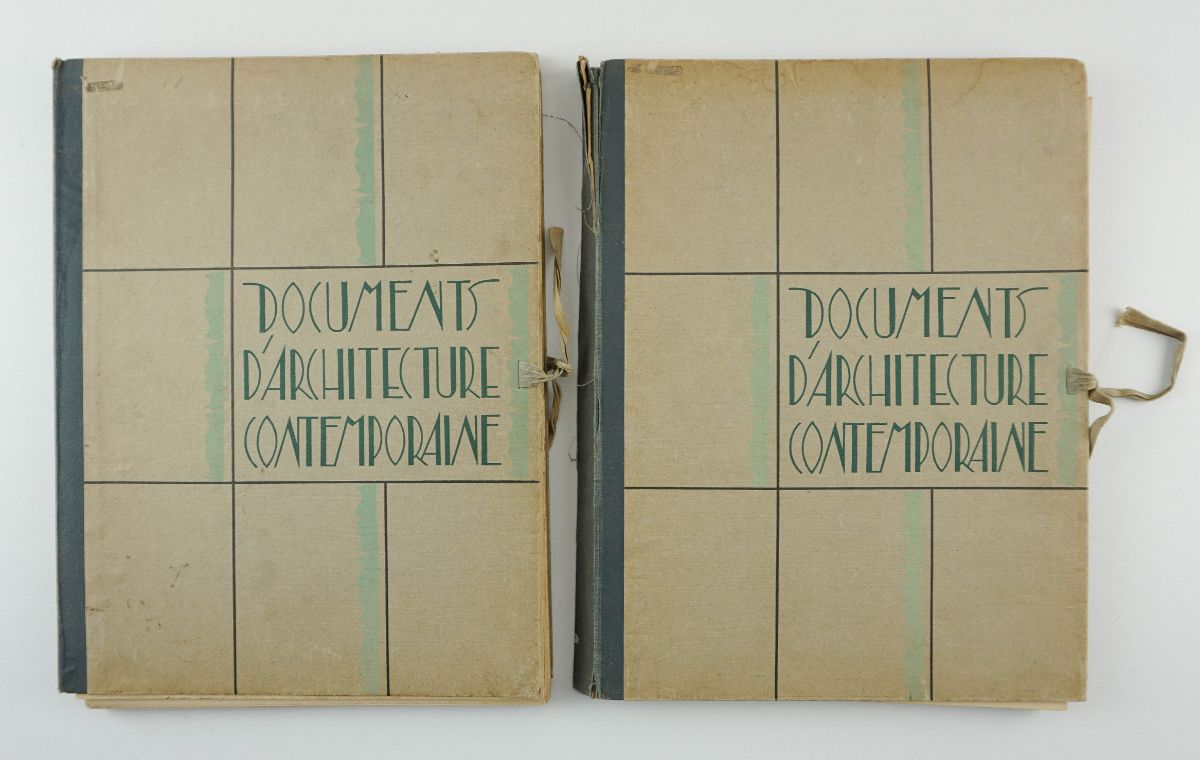 DOCUMENTS
D'ARCHITECTURE
CONTEMPORAINE
DOCUMENTS
D'ARCHITECTURE
CONTEMPORAINE